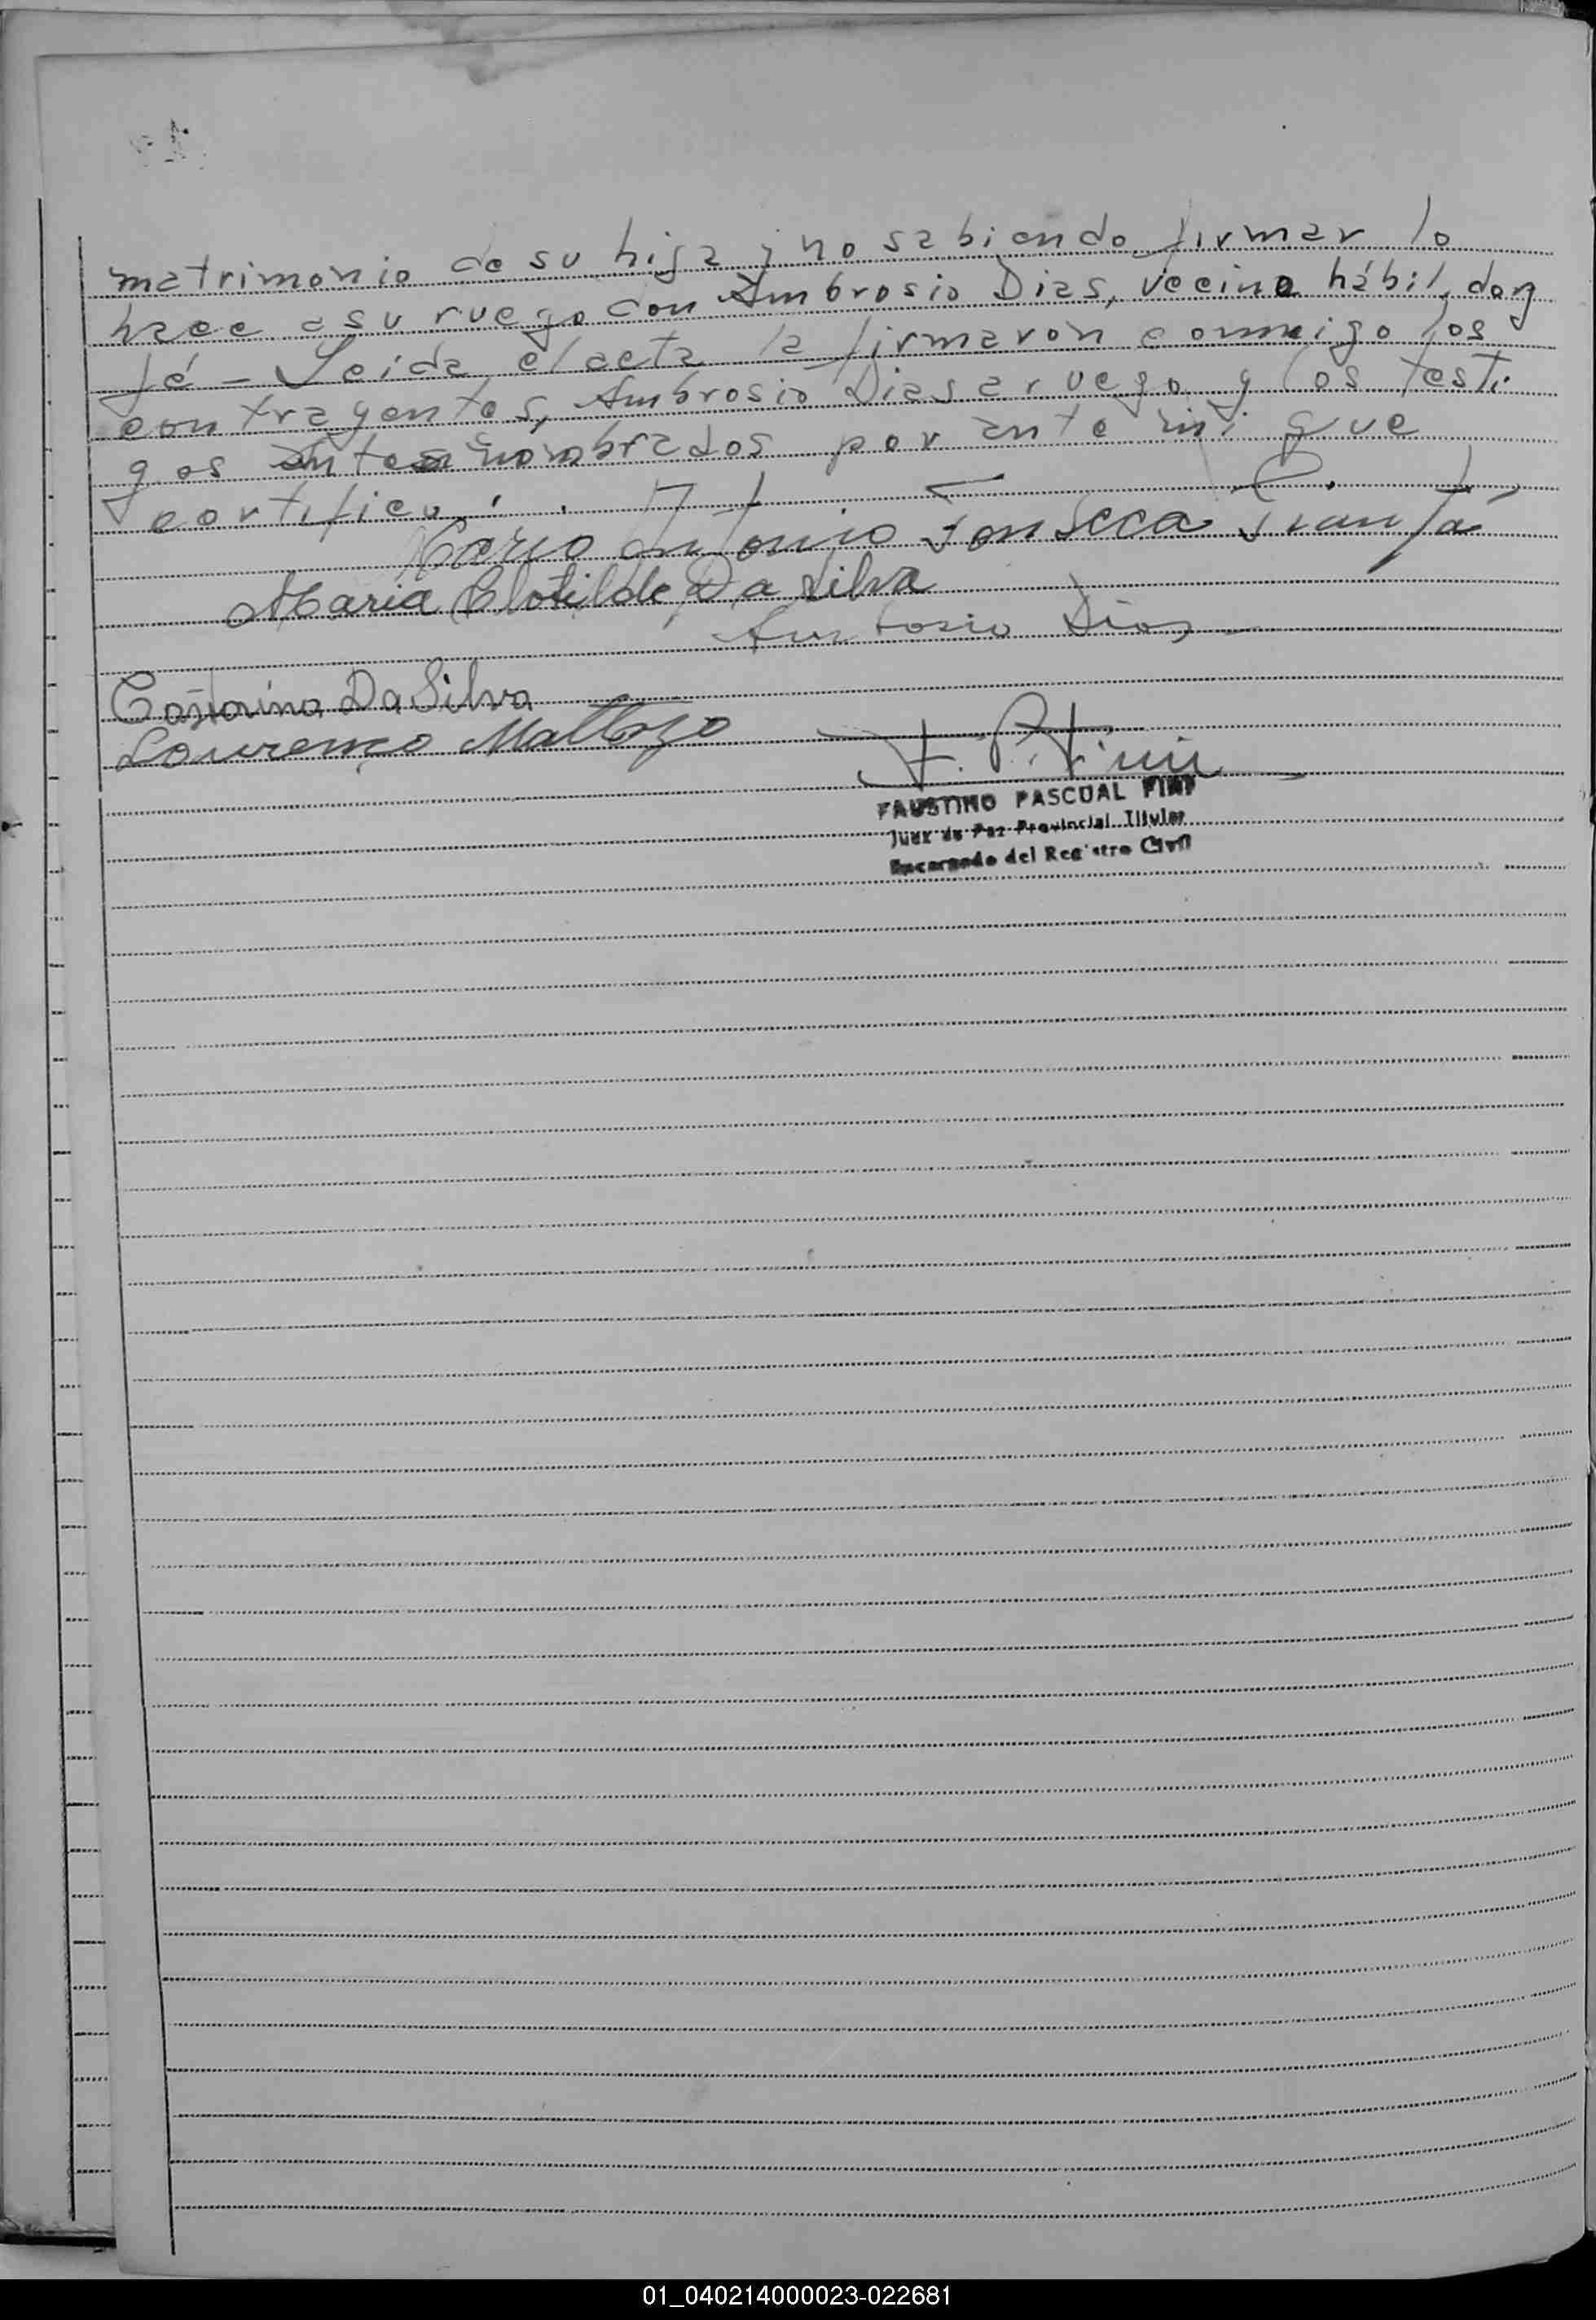 matrimonio de su hija y no sabiendo firmar lo
hace a su ruego con Ambrosio Dias, vecino hábil, doy
fé - Leida el acta la firmaron conmigo los
contrayentes, Ambrosio Dias a ruego y los testi
gos antes nombrados por ante mi que
certifico.
Mario Antonio Fonseca
Maria Clotilde Da Silva
Ambosio Dias
Castorina Da Silva
Lourenço Mattozo
F. P. Fini
FAUSTINO PASCUAL FINI
Juez de Paz Provincial Titular
Encargado del Registro Civil
01_040214000023-022681